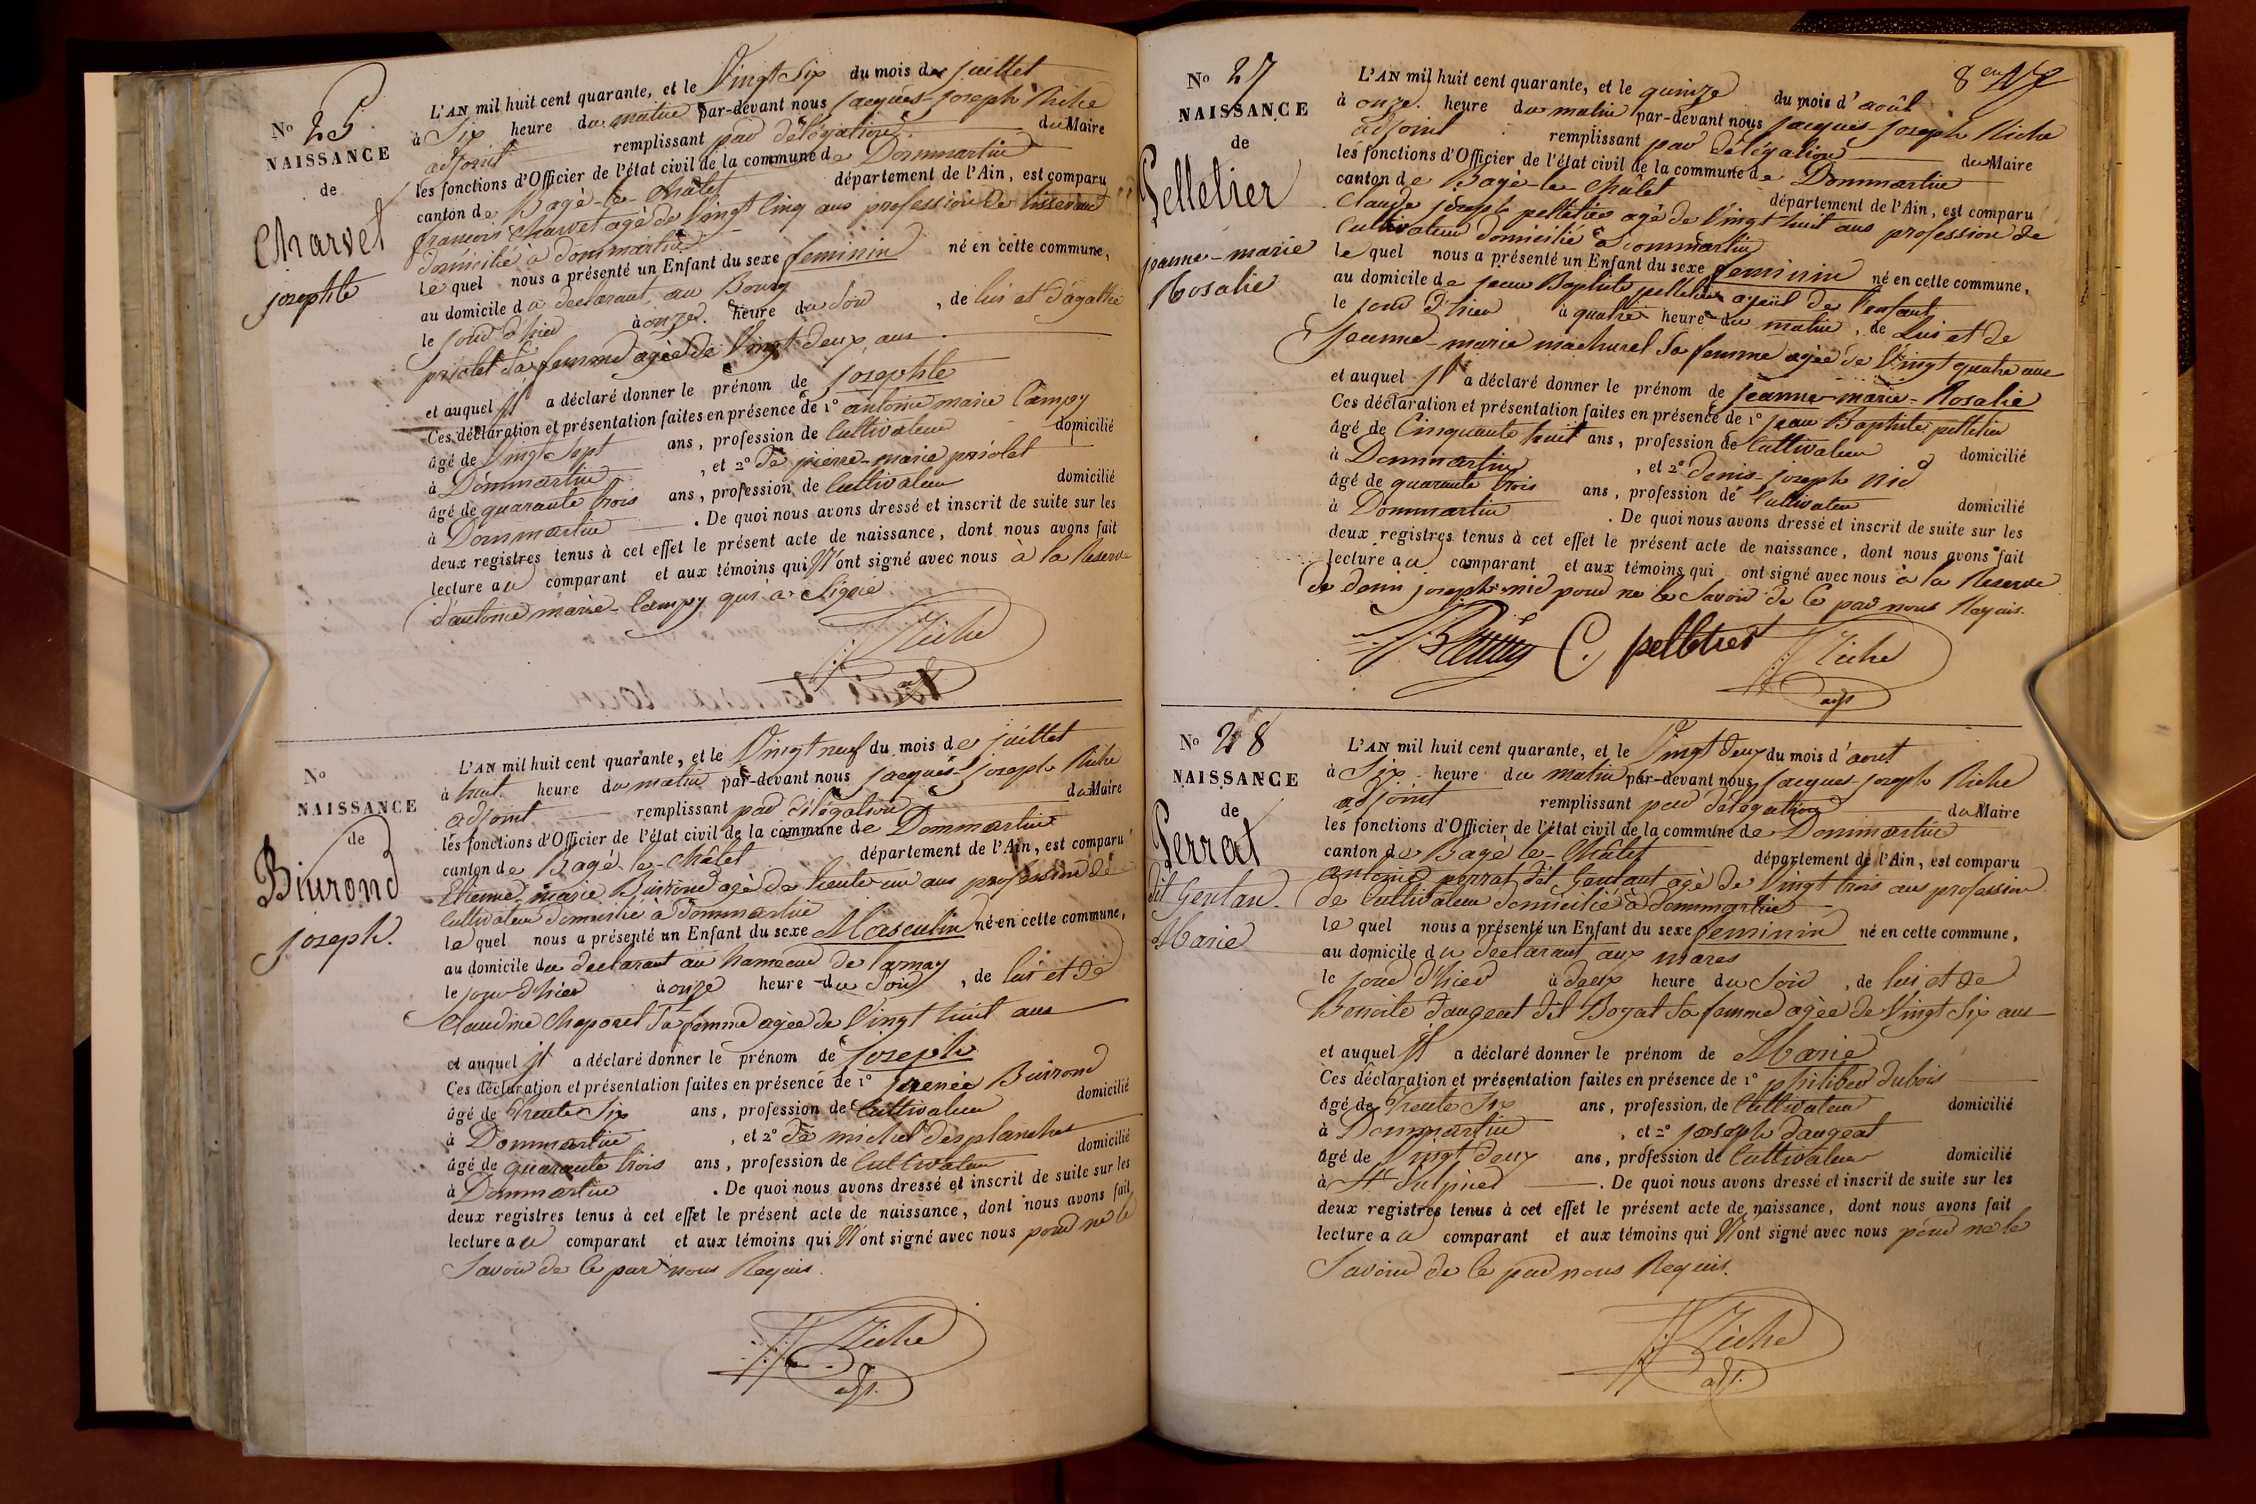 No 25
NAISSANCE
de
Charvet
josephte
L'AN mil huit cent quarante, et le Vingt Six du mois de juillet
à Six heure du matin par-devant nous jacques-joseph Riche
adjoint remplissant par délégation du Maire
les fonctions d'Officier de l'état civil de la commune de Dommartin
canton de Bagé-le-Châtel département de l'Ain, est comparu
françois Charvet agé de Vingt Cinq ans profession de tisserand
domicilié à dommartin
lequel nous a présenté un Enfant du sexe feminin né en cette commune,
au domicile du declarant au Bourg
le jour d'hier à onze heure du Soir, de lui et d'agathe
priolet Sa femme agée de Vingt deux ans
et auquel il a déclaré donner le prénom de josephte
Ces déclaration et présentation faites en présence de 1º antoine marie Campy
âgé de Vingt Sept ans, profession de Cultivateur domicilié
à Dommartin, et 2º de pierre-marie priolet
âgé de quarante trois ans, profession de Cultivateur domicilié
à Dommartin. De quoi nous avons dressé et inscrit de suite sur les
deux registres tenus à cet effet le présent acte de naissance, dont nous avons fait
lecture au comparant et aux témoins qui N'ont signé avec nous à la Reserve
d'antoine marie Campy qui à Signé
Riche
No
NAISSANCE
de
Buirond
joseph.
L'AN mil huit cent quarante, et le Vingt neuf du mois de juillet
à huit heure du matin par-devant nous jacques-joseph Riche
adjoint remplissant par délégation du Maire
les fonctions d'Officier de l'état civil de la commune de Dommartin
canton de Bagé-le-Châtel département de l'Ain, est comparu
Etienne marie Buirond agé de trente un ans profession de
Cultivateur domicilié à Dommartin
lequel nous a présenté un Enfant du sexe Masculin né en cette commune,
au domicile du declarant au hameau de
le jour d'hier à onze heure du Soir, de lui et de
Claudine Chaponet Sa femme agée de Vingt huit ans
et auquel il a déclaré donner le prénom de joseph
Ces déclaration et présentation faites en présence de 1º Buirond
âgé de trente Six ans, profession de Cultivateur domicilié
à Dommartin, et 2º de michel desplanches
âgé de quarante trois ans, profession de Cultivateur domicilié
à Dommartin. De quoi nous avons dressé et inscrit de suite sur les
deux registres tenus à cet effet le présent acte de naissance, dont nous avons fait
lecture au comparant et aux témoins qui N'ont signé avec nous pour ne le
Savoir de Ce par nous Requis.
Riche
adj.
No 27
NAISSANCE
de
Pelletier
jeanne-marie
Rosalie
L'AN mil huit cent quarante, et le quinze du mois d'août
à onze heure du matin par-devant nous jacques-joseph Riche
adjoint remplissant par délégation du Maire
les fonctions d'Officier de l'état civil de la commune de Dommartin
canton de Bagé-le-Châtel département de l'Ain, est comparu
Claude joseph pelletier agé de Vingt huit ans profession de
Cultivateur domicilié à Dommartin
lequel nous a présenté un Enfant du sexe feminin né en cette commune,
au domicile de jean Baptiste pelletier ayeul de l'enfant
le jour d'hier à quatre heure du matin, de Lui et de
jeanne-marie machurel Sa femme agée de Vingt quatre ans
et auquel il a déclaré donner le prénom de jeanne-marie-Rosalie
Ces déclaration et présentation faites en présence de 1º jean Baptiste pelletier
âgé de Cinquante huit ans, profession de Cultivateur domicilié
à Dommartin, et 2º denis-joseph nid
âgé de quarante trois ans, profession de Cultivateur domicilié
à Dommartin. De quoi nous avons dressé et inscrit de suite sur les
deux registres tenus à cet effet le présent acte de naissance, dont nous avons fait
lecture au comparant et aux témoins qui ont signé avec nous à la Reserve
de denis joseph nid pour ne le Savoir de Ce par nous Requis.
C. pelletier Riche
adj.
No 28
NAISSANCE
de
Perrat
dit Gentan
Marie
L'AN mil huit cent quarante, et le Vingt deux du mois d'aout
à Six heure du matin par-devant nous jacques joseph Riche
adjoint remplissant par délégation du Maire
les fonctions d'Officier de l'état civil de la commune de Dommartin
canton de Bagé le-Châtel département de l'Ain, est comparu
antoine perrat dit Gentant agé de Vingt trois ans profession
de Cultivateur domicilié à dommartin
lequel nous a présenté un Enfant du sexe feminin né en cette commune,
au domicile du declarant aux mares
le jour d'hier à deux heure du Soir, de lui et de
Benoite daugeat dit Boyat Sa femme agée de Vingt Six ans
et auquel il a déclaré donner le prénom de Marie
Ces déclaration et présentation faites en présence de 1º philibert dubois
âgé de trente Six ans, profession de Cultivateur domicilié
à Dommartin, et 2º joseph daugeat
âgé de Vingt deux ans, profession de Cultivateur domicilié
à St Sulpice. De quoi nous avons dressé et inscrit de suite sur les
deux registres tenus à cet effet le présent acte de naissance, dont nous avons fait
lecture au comparant et aux témoins qui N'ont signé avec nous pour ne le
Savoir de Ce par nous Requis.
Riche
adj.